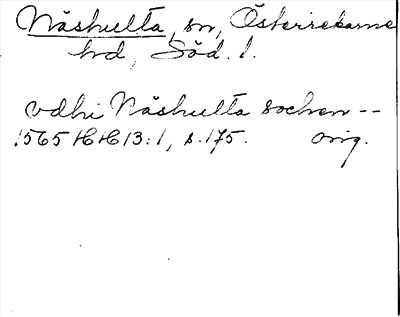 Näshulta, sn, Österrekarne
hd, Söd. l.
vdhi Näshulta sochen --
1565 HH 13:1, s. 175. orig.